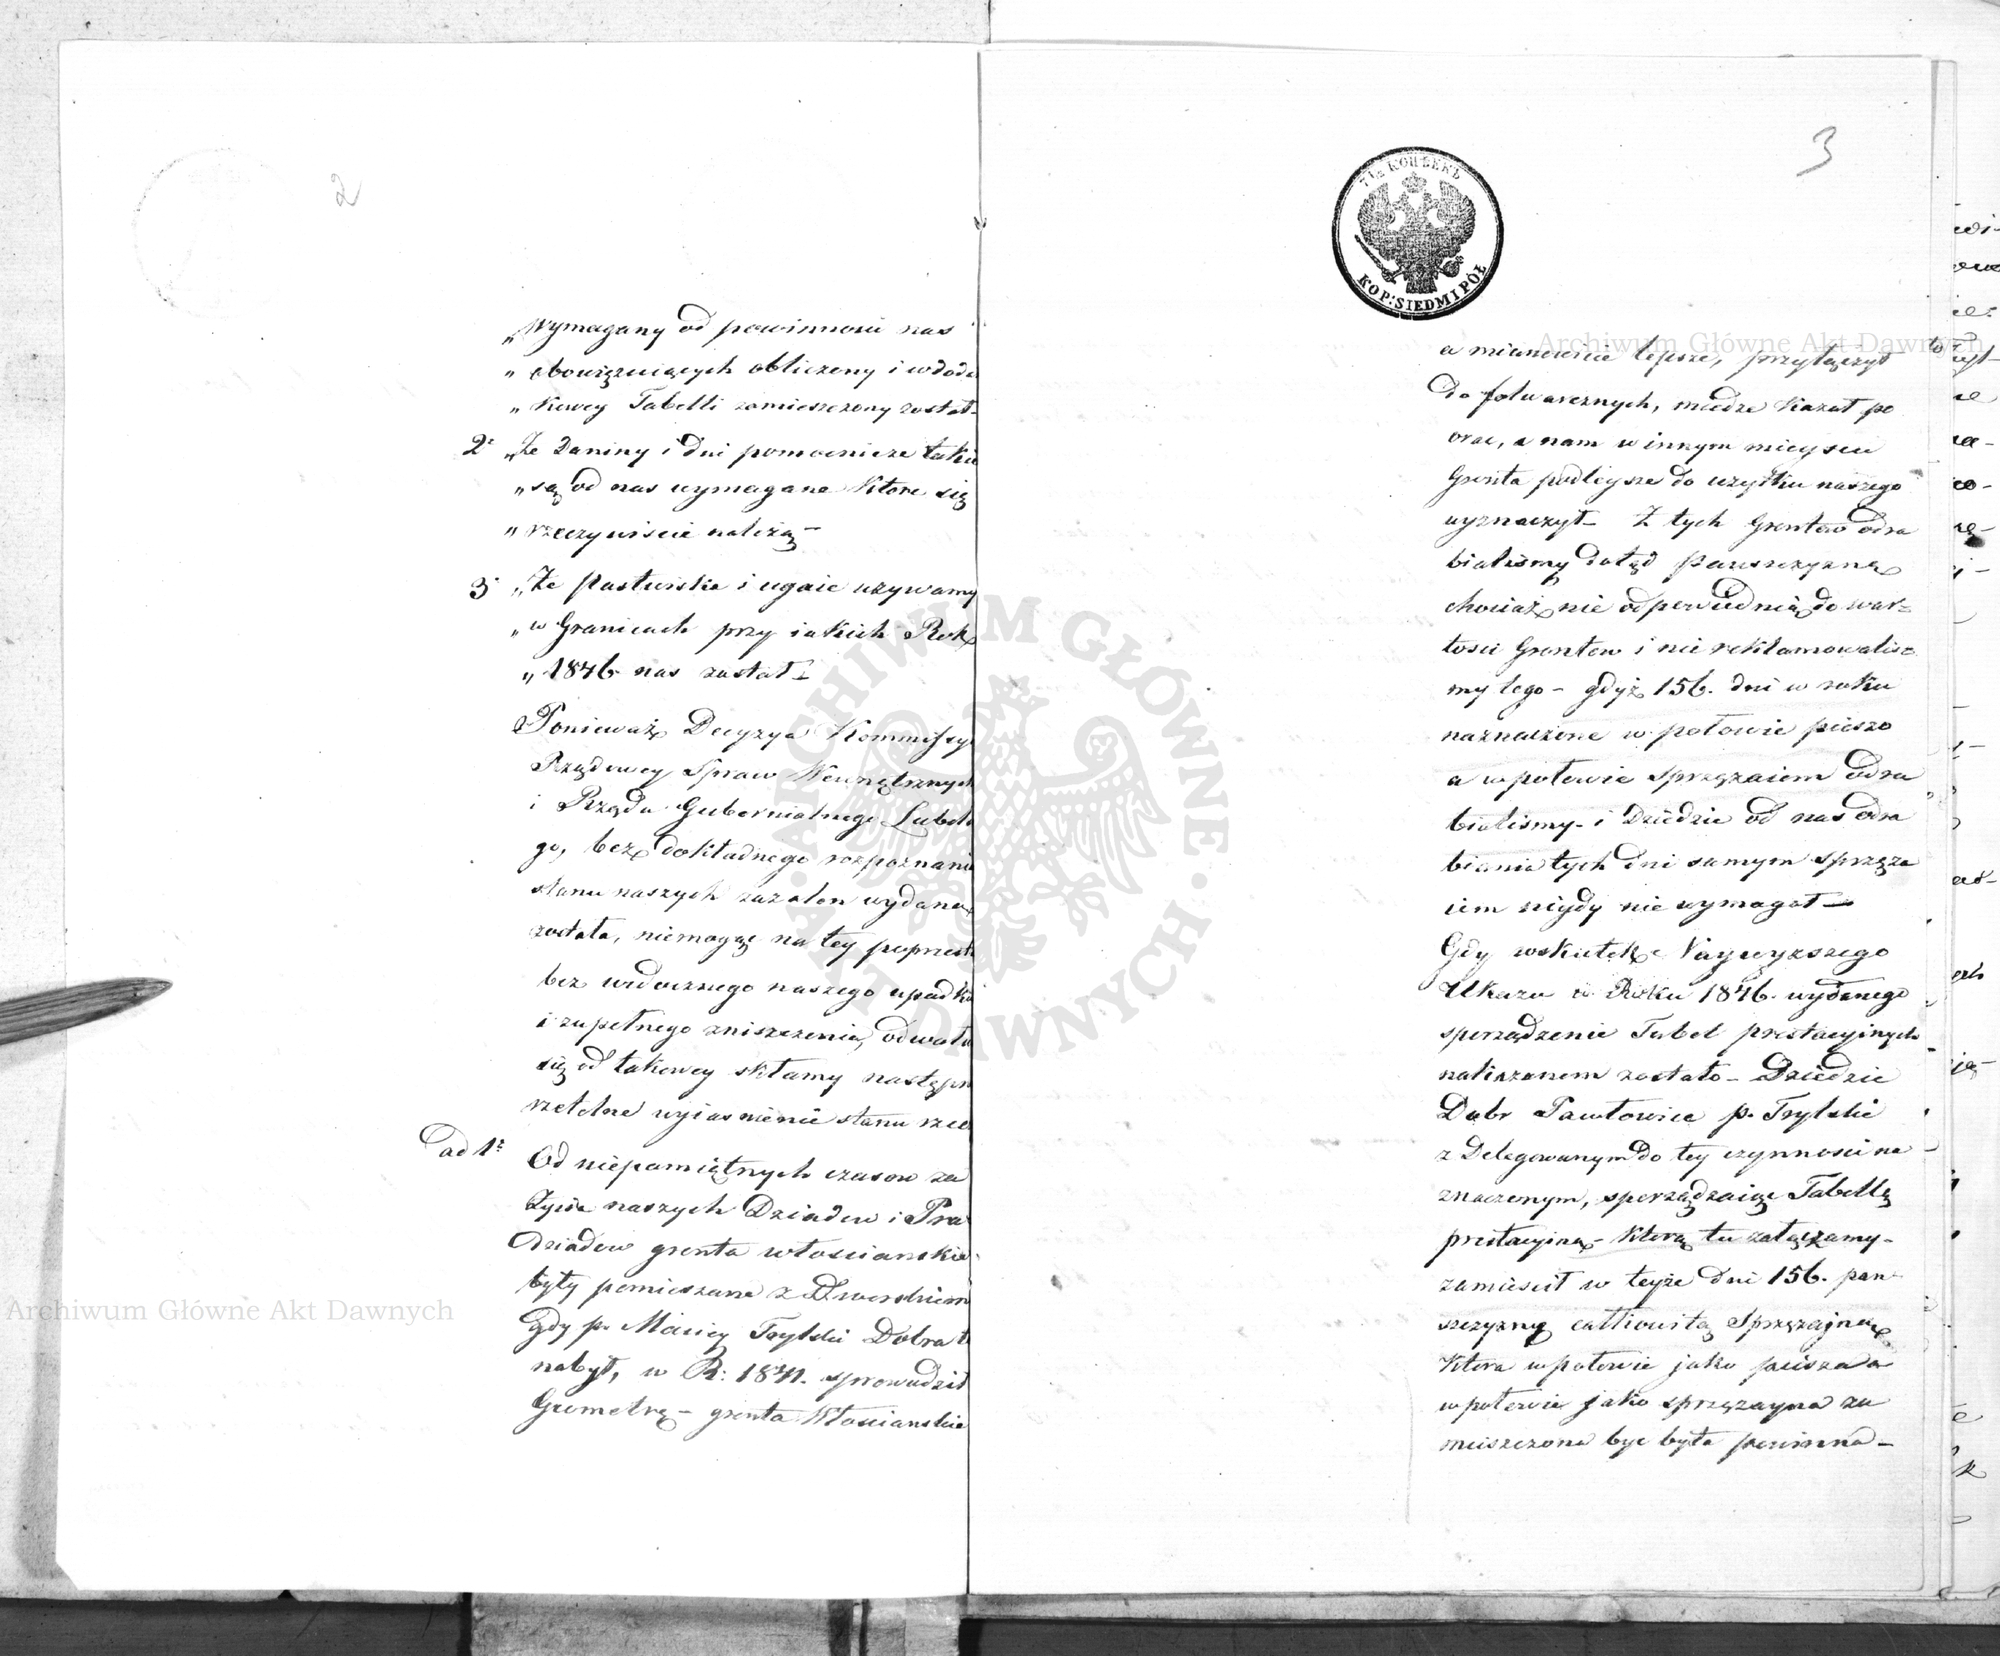 2
„Wymagany od powinności nas
„ obowięzuiących obliczony i w doda
„ kowey Tabelli zamieszczony został-
2° „Że Daniny i Dni pomocnicze takie
„ są od nas wymagane które się
„ rzeczywiście należą –
3° „Że Pastwiska i ugaie używamy
„ w Granicach przy iakich Rok
„ 1846 nas zastał –
Ponieważ Decyzya Kommissyi
Rządowey Spraw Wewnętrznych
i Rządu Gubernialnego Lubels
go, bez dokładnego rozpoznania
stanu naszych zażaleń wydana
została, niemogąc na tey poprzest
bez widocznego naszego upadku
i zupełnego zniszczenia, odwołu
się od takowey składamy następn
rzetelne wyiaśnienie stanu rzec
ad 1° Od niepamiętnych czasow za
życia naszych Dziadow i Pra
dziadow gronta włosciańskie
były pomieszane z Dworskiem
gdy p. Maciey Trylski Dobra te
nabył, w R: 1841. sprowadził
Geometrę – gronta Włościanskie
3
7 1/2 КОПѢЕКЪ
KOP: SIEDMI PÓŁ
a mianowicie lepsze, przyłączył
do folwarcznych, miedze kazał po
orać, a nam w innym mieyscu
Gronta podleysze do użytku naszego
wyznaczył – Z tych Grontow odra
bialismy dotąd pańszczyznę
chociaż nie odpowiednią do war-
tosci Grontow i nie reklamowalis
my tego – gdyż 156. dni w roku
naznaczone w połowie pieszo
a w połowie sprzężaiem odra
bialismy – i Dziedzic od nas odra
biania tych dni samym sprzęża
iem nigdy nie wymagał –
Gdy wskutek Naywyższego
Ukazu w Roku 1846. wydanego
sporządzenie Tabel prestacyjnych
nakazanem zostało – Dziedzic
Dobr Pawłowice p. Trylski
z Delegowanym do tey czynnosci na
znaczonym, sporządzaiąc Tabellę
prestacyiną – którą tu załączamy –
zamieścił w teyże dni 156. pań-
szczyznę całkowitą Sprzężajną
która w połowie jako piesza a
w połowie jako sprzężayna za
mieszczona być była powinna –
Archiwum Główne Akt Dawnych
Archiwum Główne Akt Dawnych
ARCHIWUM GŁÓWNE AKT DAWNYCH